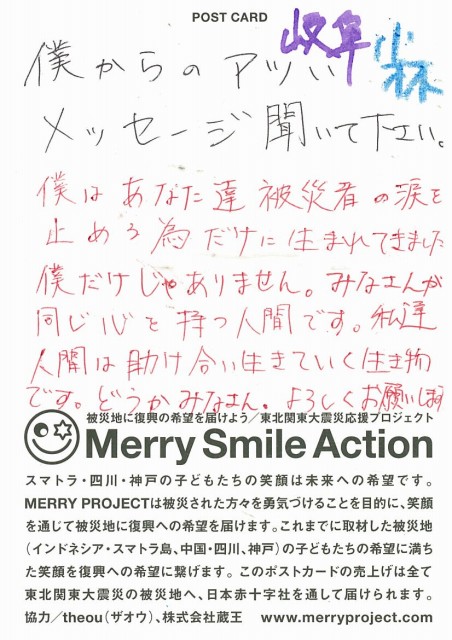 POST CARD
岐阜 小林
僕からのアツい
メッセージ聞いて下さい。
僕はあなた達被災者の涙を
止める為だけに生まれてきました
僕だけじゃありません。みなさんが
同じ心を持つ人間です。私達
人間は助け合い生きていく生き物
です。どうかみなさん。よろしくお願いします
被災地に復興の希望を届けよう／東北関東大震災応援プロジェクト
Merry Smile Action
スマトラ・四川・神戸の子どもたちの笑顔は未来への希望です。
MERRY PROJECTは被災された方々を勇気づけることを目的に、笑顔
を通じて被災地に復興への希望を届けます。これまでに取材した被災地
（インドネシア・スマトラ島、中国・四川、神戸）の子どもたちの希望に満ち
た笑顔を復興への希望に繋げます。このポストカードの売上げは全て
東北関東大震災の被災地へ、日本赤十字社を通して届けられます。
協力／theou（ザオウ）、株式会社蔵王 www.merryproject.com